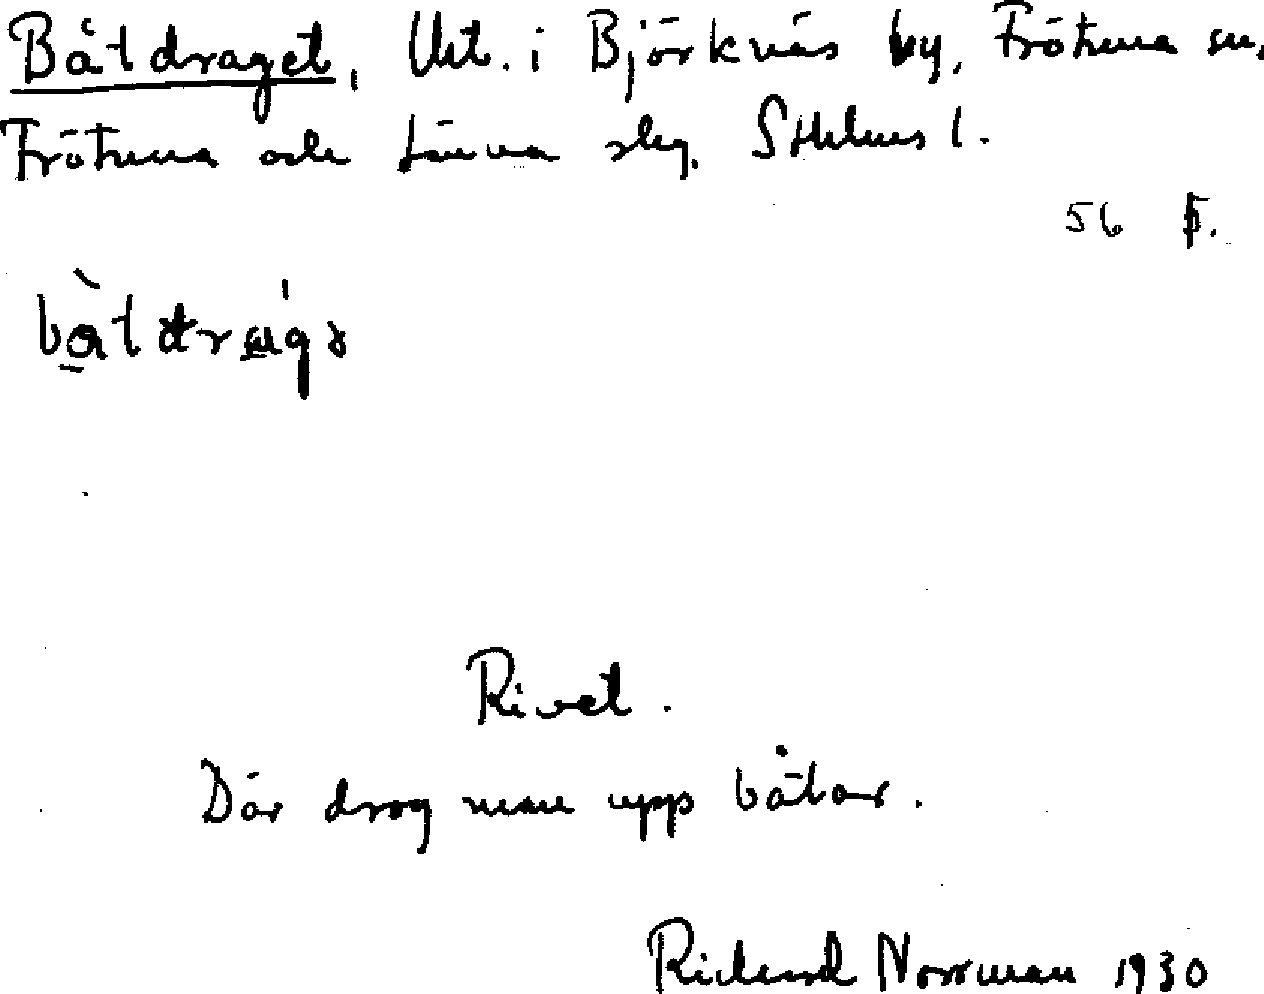 Båtdraget, Urt. i Björknäs by, Frötuna sn,
Frötuna och Länna skg. Sthlms l.
56 F.
båtdrɑgə
Rivet.
Där drog man upp båtar.
Rickard Norrman 1930